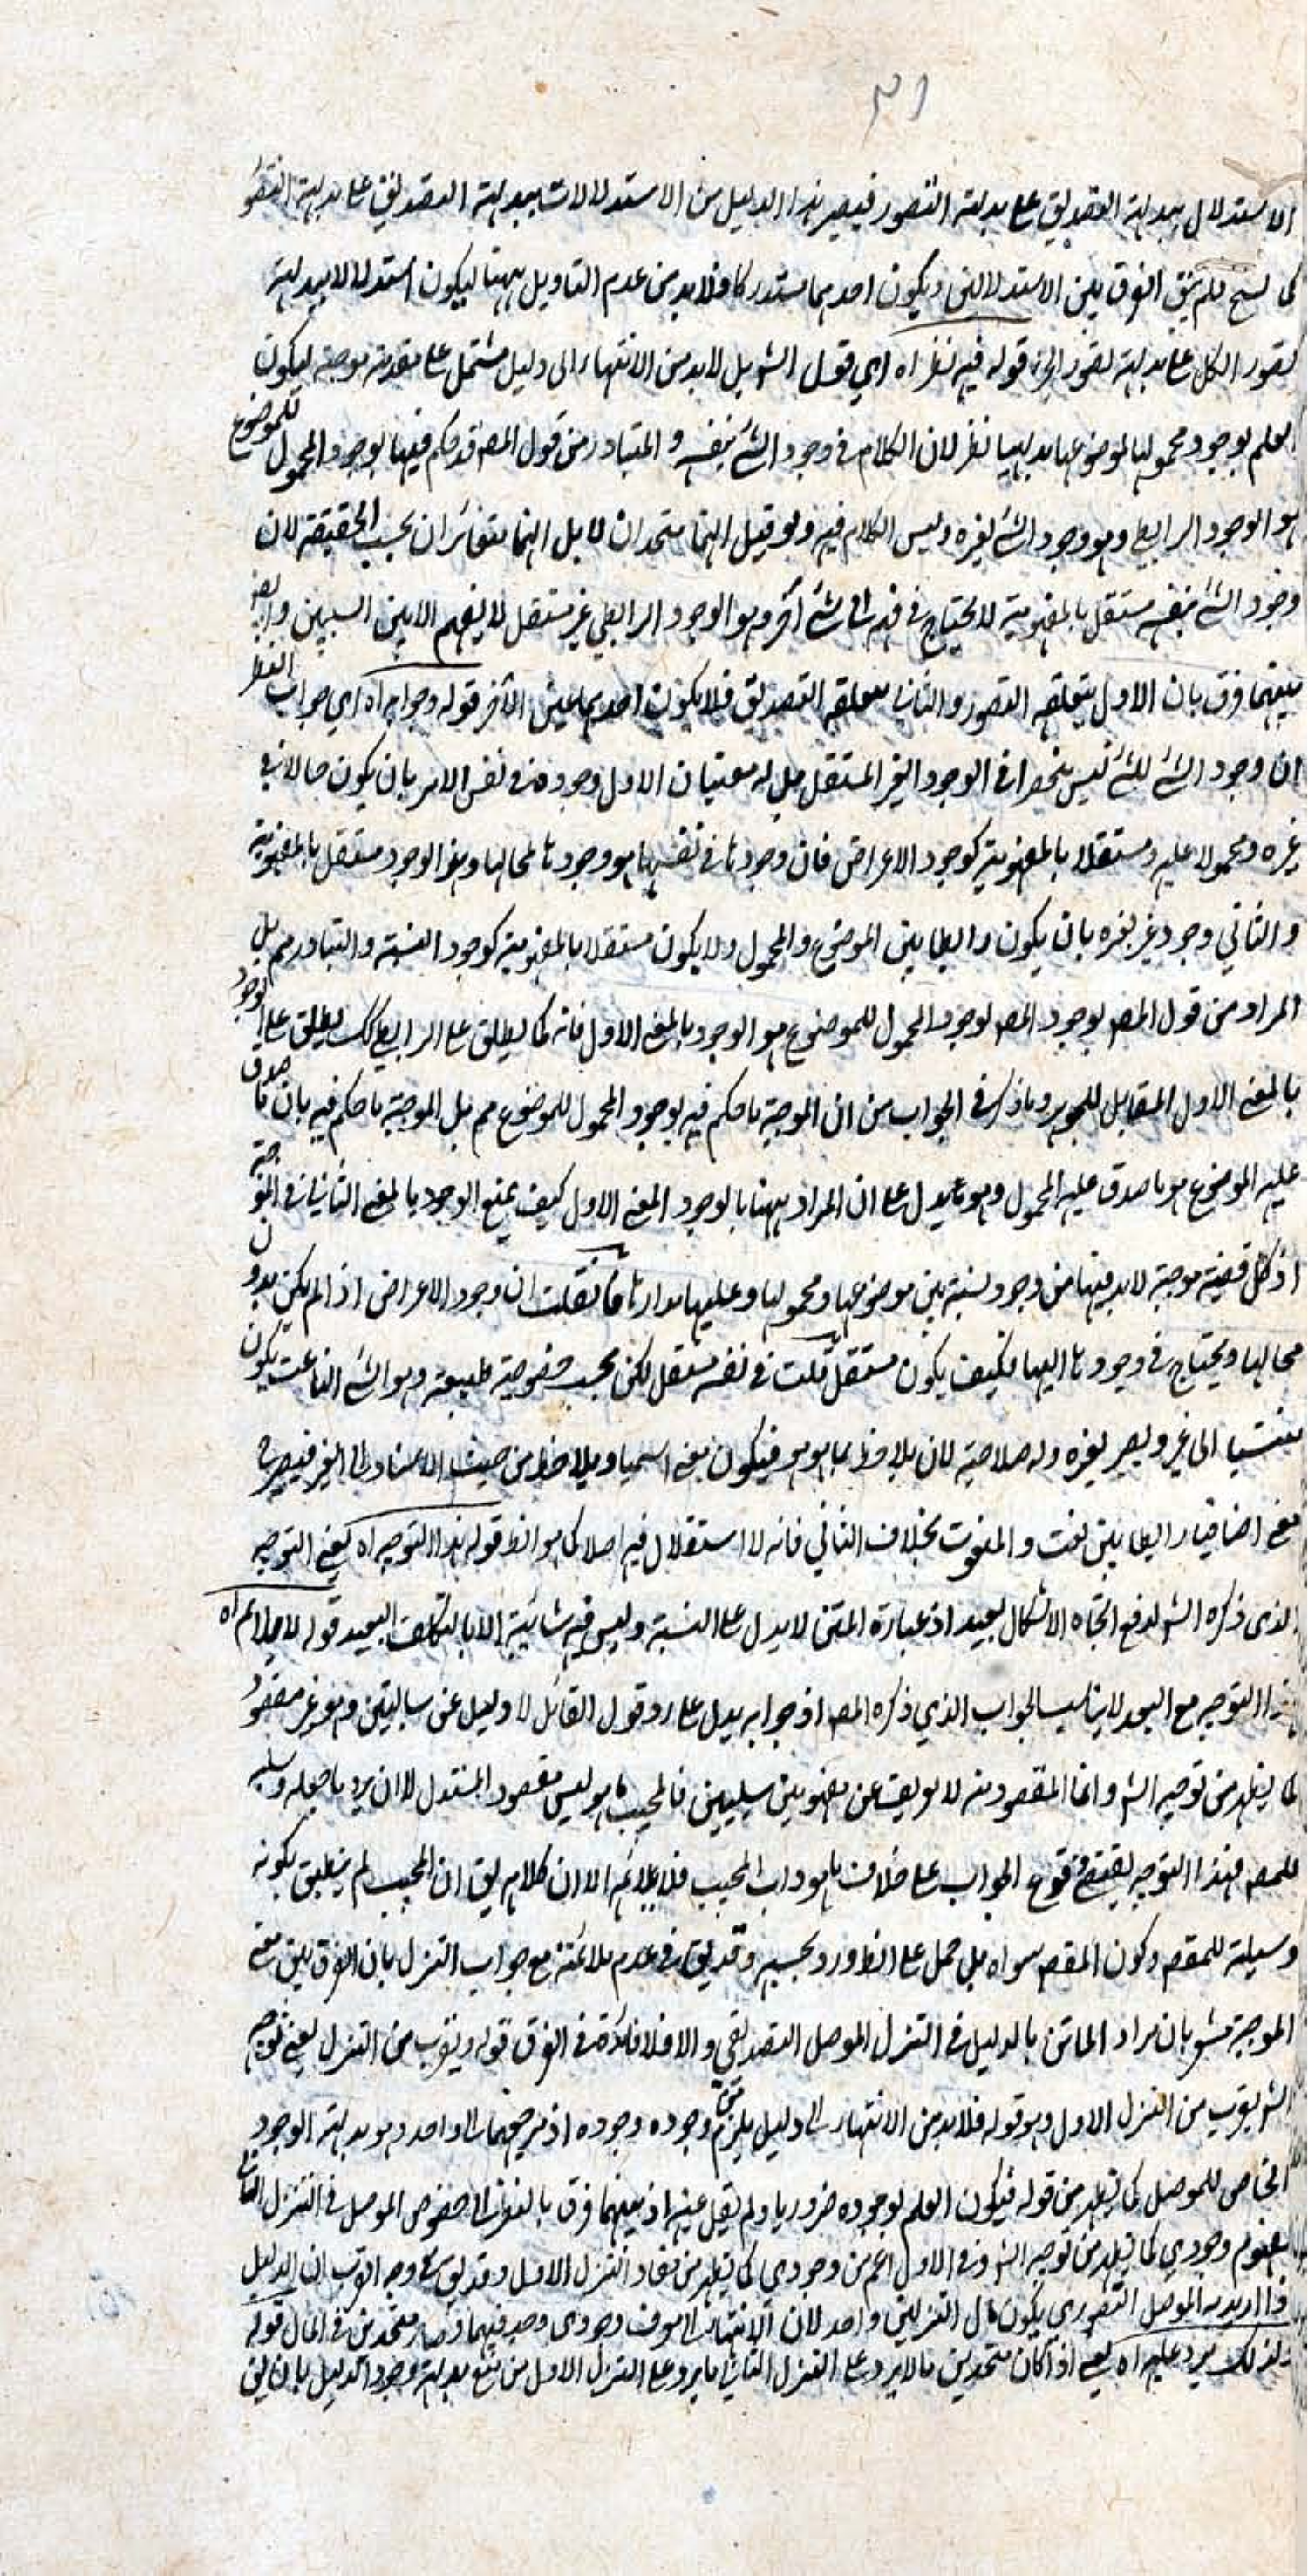 ٣١
الاستدلال ببداهة التصديق على بداهة التصور فيصير هذا الدليل من الاستدلالات ببداهة التصديق على بداهة التصو
كما لسح فلم يبق الفرق بين الاستدلالين ويكون احدهما مستدركا فلا بد من عدم التاويل ههنا ليكون استدلالا ببداهة
تصور الكل على بداهة تصور الجزء قوله فيه نظر اه اي قول الشر بل لا بد من الانتهاء الى دليل مشتمل على مقدمة موجبة ليكون
العلم بوجود محمولها لموضوعها بديهيا نظر لان الكلام في وجود الشئ بنفسه و المتبادر من قول المصه قد حكم فيها بوجود المحمول للموضوع
هو الوجود الرابطي وهو وجود الشئ لغيره وليس الكلام فيه ولو قيل انهما متحدان لا بل انهما متغائران بحسب الحقيقة لان
وجود الشئ بنفسه مستقل بالمفهومية لا يحتاج في فهمه الى شئ آخر وهو الوجود الرابطي غير مستقل لا يفهم الا بين الشيئين وايضا
بينهما فرق بان الاول يتعلقه التصور والثاني يتعلقه التصديق فلا يكون احدهما عين الآخر قوله وجوابه اه اي جواب النظر
ان وجود الشئ للشئ ليس منحصرا في الوجود الغير المستقل بل له معنيان الاول وجوده في نفس الامر بان يكون حالا في
غيره ومحمولا عليه ومستقلا بالمفهومية كوجود الاعراض فان وجودها في نفسها هو وجودها لمحالها وهو الوجود مستقل بالمفهومية
و الثاني وجود غير لغيره بان يكون رابطا بين الموضوع والمحمول ولا يكون مستقلا بالمفهومية كوجود النسبة والتبادر مم بل
المراد من قول المصه بوجود المصه لوجود المحمول للموضوع هو الوجود بالمعنى الاول فانه كما يطلق على الرابطي كك يطلق على الوجود
بالمعنى الاول المقابل للجوهر وما ذكر في الجواب من ان الموجبة ما حكم فيه بوجود المحمول للموضوع مم بل الموجبة ما حكم فيه بان ما صدق
عليه الموضوع هو ما صدق عليه المحمول وهو ما يدل على ان المراد ههنا بالوجود المعنى الاول كيف يمنع الوجود بالمعنى الثاني في الموجبة
اذ كل قضية موجبة لا بد فيها من وجود نسبة بين موضوعها ومحمولها وعليها مدارها فان قلت ان وجود الاعراض اذا لم يكن بدون
محالها ويحتاج في وجودها اليها فكيف يكون مستقل قلت في نفسه مستقل لكن بحسب خصوصية طبيعته وهو الشئ الناعت يكون
منتسبا الى غير ويصير لغيره وله صلاحية لان يلاحظ بما هو هو فيكون معنى اسميا ويلاحظ من حيث الاسناد الى الغير فيصير
معنى اضافيا رابطا بين نعت و المنعوت بخلاف الثاني فانه لا استقلال فيه اصلا كما هو الظ قوله هذا التوجيه اه يعني التوجيه
الذي ذكره الشر لدفع اتجاه الاشكال بعيد اذ عبارة المتن لا يدل على النسبة وليس فيه شائبة الا بالتكلف البعيد قوله لا يلائم اه
هذا التوجيه مع البعد لا يناسب الجواب الذي ذكره المصه اذ جوابه يدل على رد قول القائل لا دليل عن سالبتين وهو غير مقصود
كما يظهر من توجيه الشر وانما المقصود منه لا يعرف عن مفهومين سلبيين فالمجيب ما هو ليس مقصود المستدل الا ان يرد ما جعله وسيلة
للمصه فهذا التوجيه يقتضي وقوع الجواب على خلاف ما هو داب المجيب فلا يلائمه الا ان كلامه يق ان المجيب لم يتعلق بكونه
وسيلة للمقصه وكون المقصه سواه بل حمل على الظ ورد بحسبه وقد يق في عدم ملائمته مع جواب التنزل بان الفرق بين معنى
الموجبة مشعر بان مراد الماتن بالدليل في التنزل الموصل التصديقي والا فلا فائدة في الفرق قوله ويقرب من التنزل يعني توجيه
الشر يقرب من التنزل الاول وهو قوله فلا بد من الانتهاء الى دليل يلزم من وجوده وجوده اذ مرجعهما الى واحد وهو بداهة الوجود
الخاص للموصل كما يظهر من قوله فيكون العلم بوجوده ضروريا ولم يقل عينه اذ بينهما فرق بالنظر الى خصوص الموصل في التنزل الثاني
بمفهوم وجودي كما يظهر من توجيه الشر وفي الاول اعم من وجودي كما يظهر من مفاد التنزل الاول وقد يق في وجه القرب ان الدليل
اذا اريد به الموصل التصوري يكون مآل التنزلين واحد لان الانتهاء الى معرف وجودى وجد فيهما وصار متحدين في المآل قوله
ولذلك يرد عليه اه يعني اذ كان متحدين فلا يرد على التنزل الثاني ما يرد على التنزل الاول من منع بداهة وجود الدليل بان يق